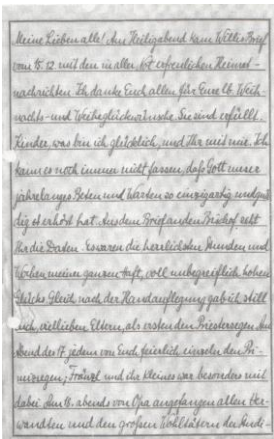 Meine Lieben alle! Am Heiligabend kam Willis Brief
vom 15.12 mit den in aller Not erfreulichen Heimat-
nachrichten. Ich danke Euch allen für Eure lb. Weih-
nachts- und Weiheglückwünsche. Sie sind erfüllt.
Kinder was bin ich glücklich, und Ihr mit mir. Ich
kann es noch immer nicht fassen, daß Gott unser
jahrelanges Beten und Warten so einzigartig und gnä-
dig erhört hat. Aus dem Brief an den Bischof seht
Ihr die Daten. Es waren die herrlichsten Stunden und
Wochen meiner ganzen Haft, voll unbegreiflich hohen
Glücks. Gleich nach der Handauflegung gab ich still
Euch, vielliebe Eltern, als ersten den Priestersegen. Am
Abend des 17. jedem von Euch feierlich einzeln den Pri-
mizsegen; Franzl und ihr kleines war besonders mit
dabei. Am 18. abends von Opa angefangen allen Ver-
wandten und den großen Wohltätern der Studi-